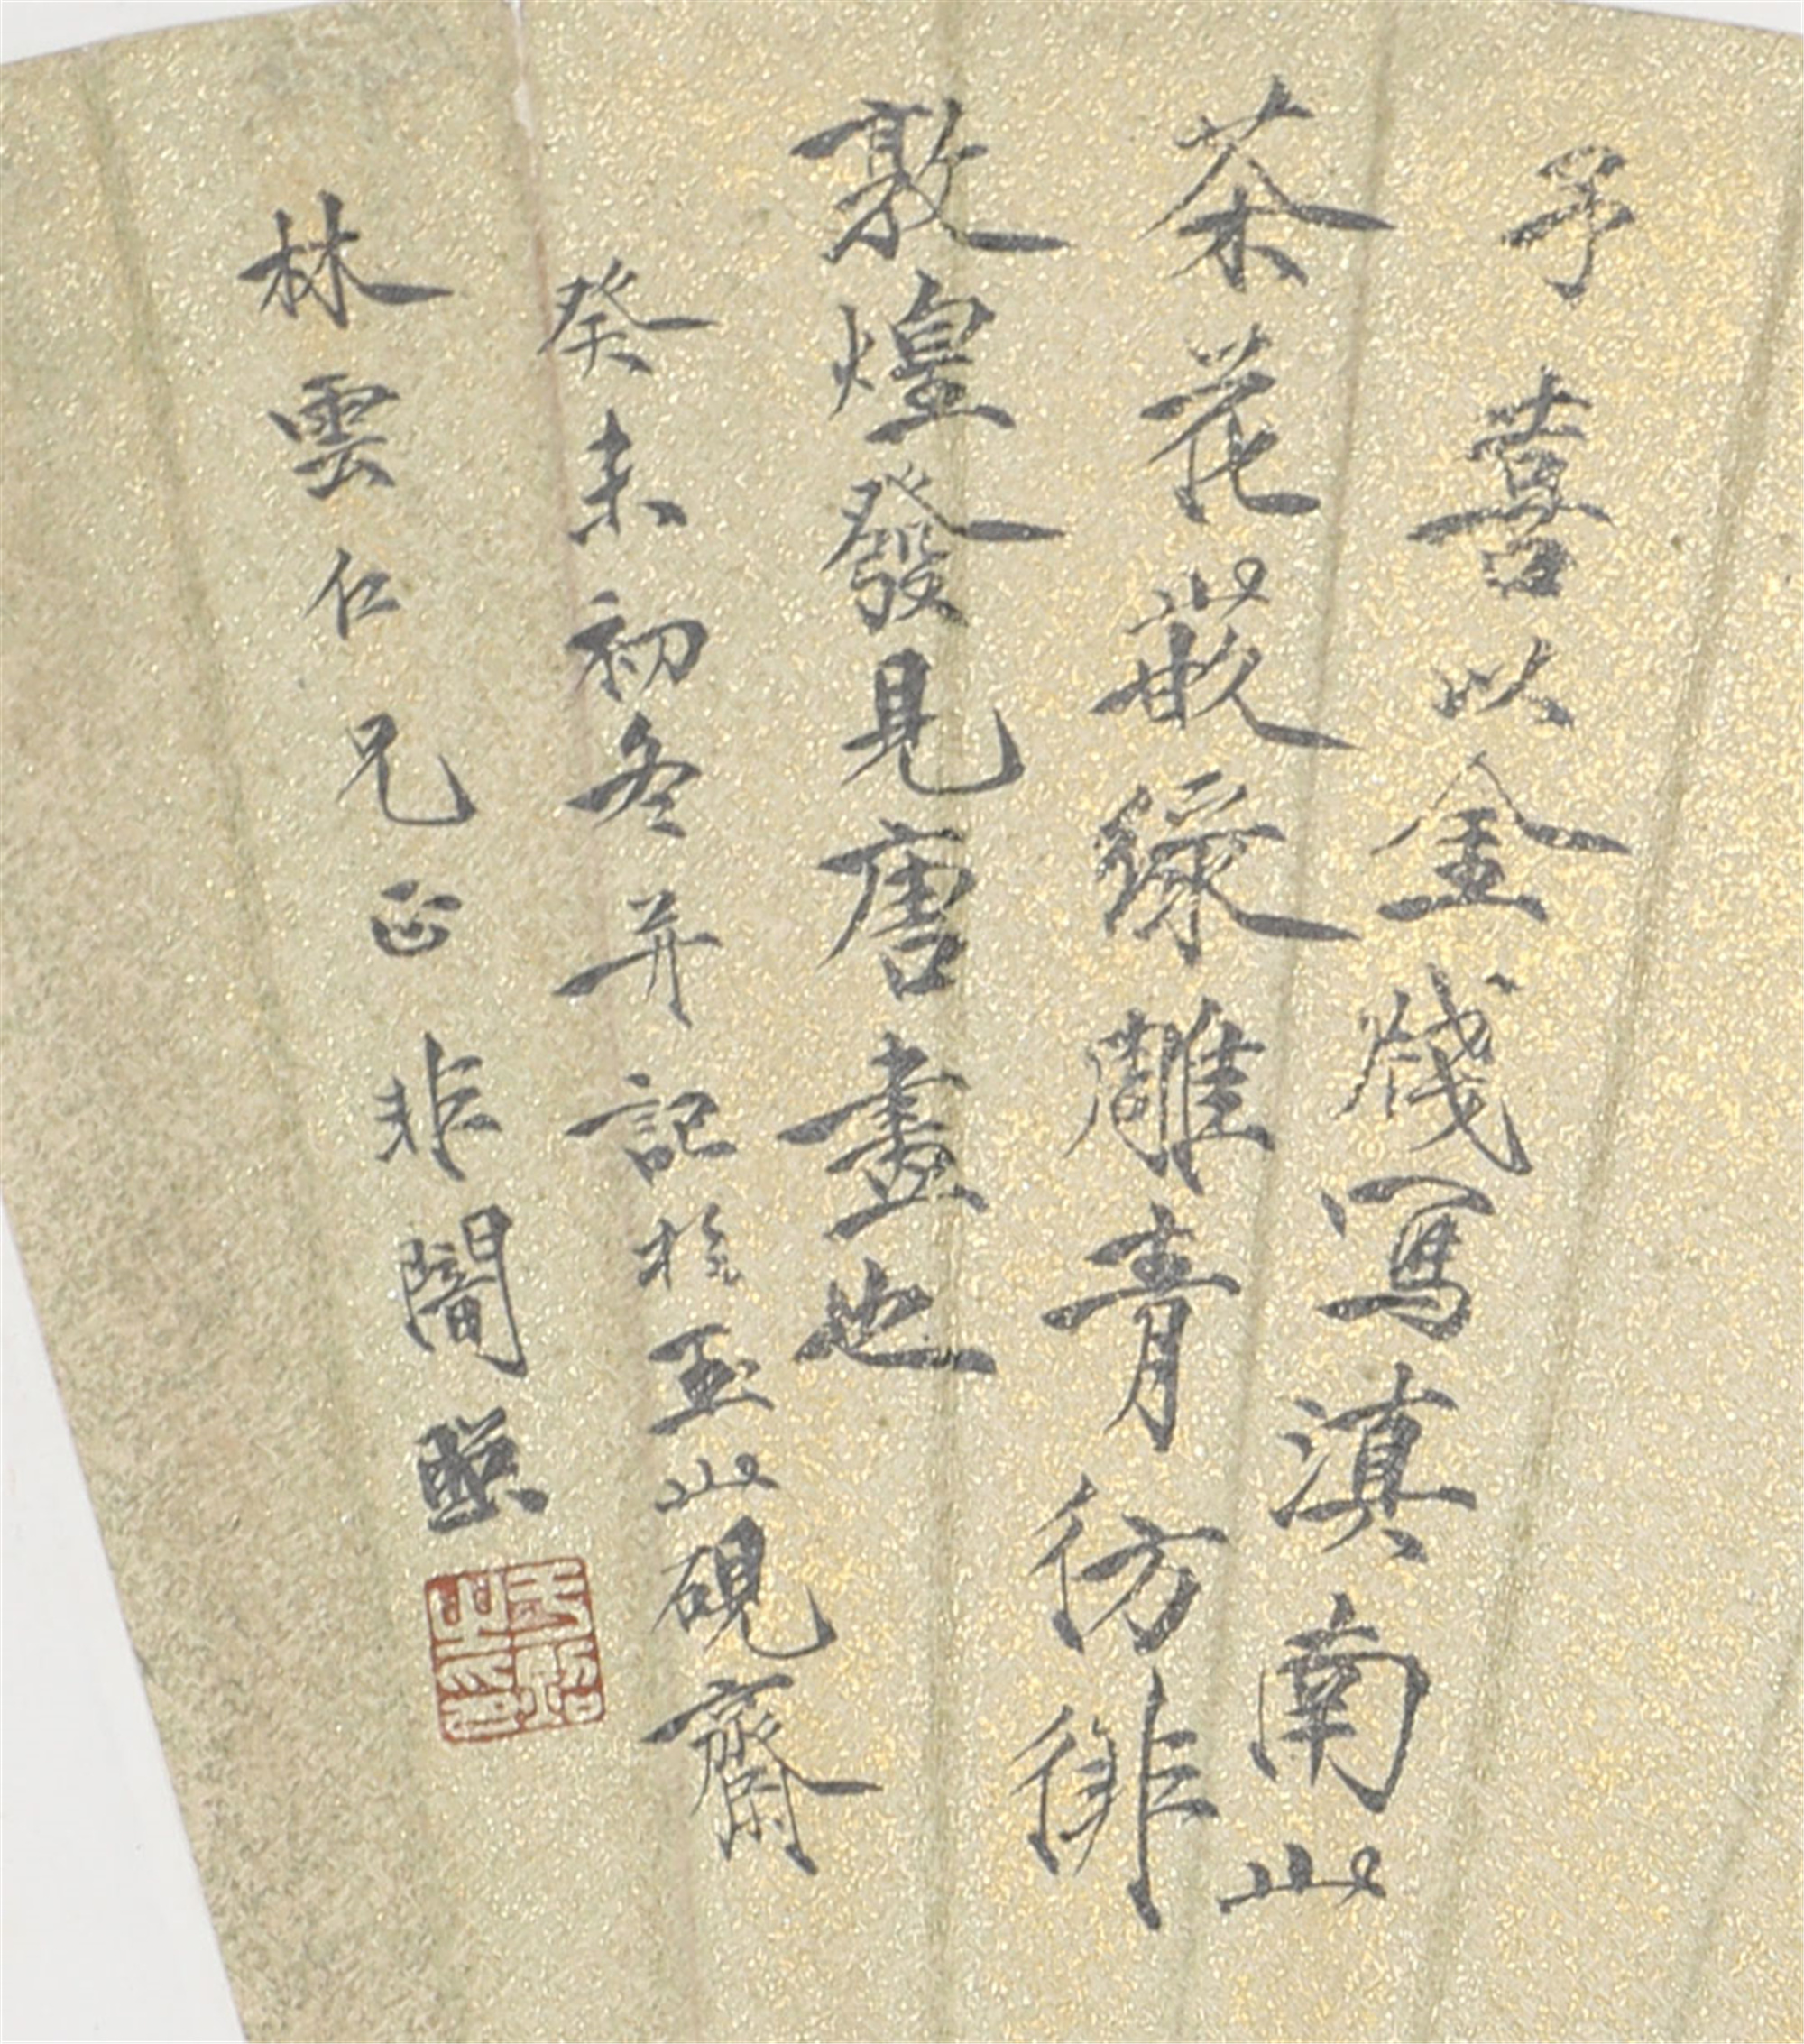 予喜以金牋写滇南山
茶花嵌綠雕青彷彿
敦煌發見唐畫也
癸未初冬并記於玉山硯齋
林雲仁兄正 非闇照